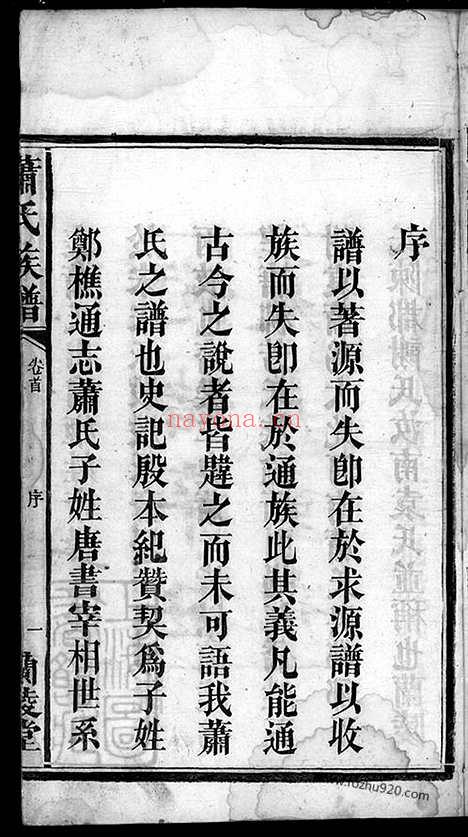 序
譜以著源而失卽在於求源譜以收
族而失卽在於通族此其義凡能通
古今之說者皆韙之而未可語我蕭
氏之譜也史記殷本紀贊契爲子姓
鄭樵通志蕭氏子姓唐書宰相世系
蕭氏族譜
卷首
序
一
蘭陵堂
nayona.cn
www.fozhu920.com